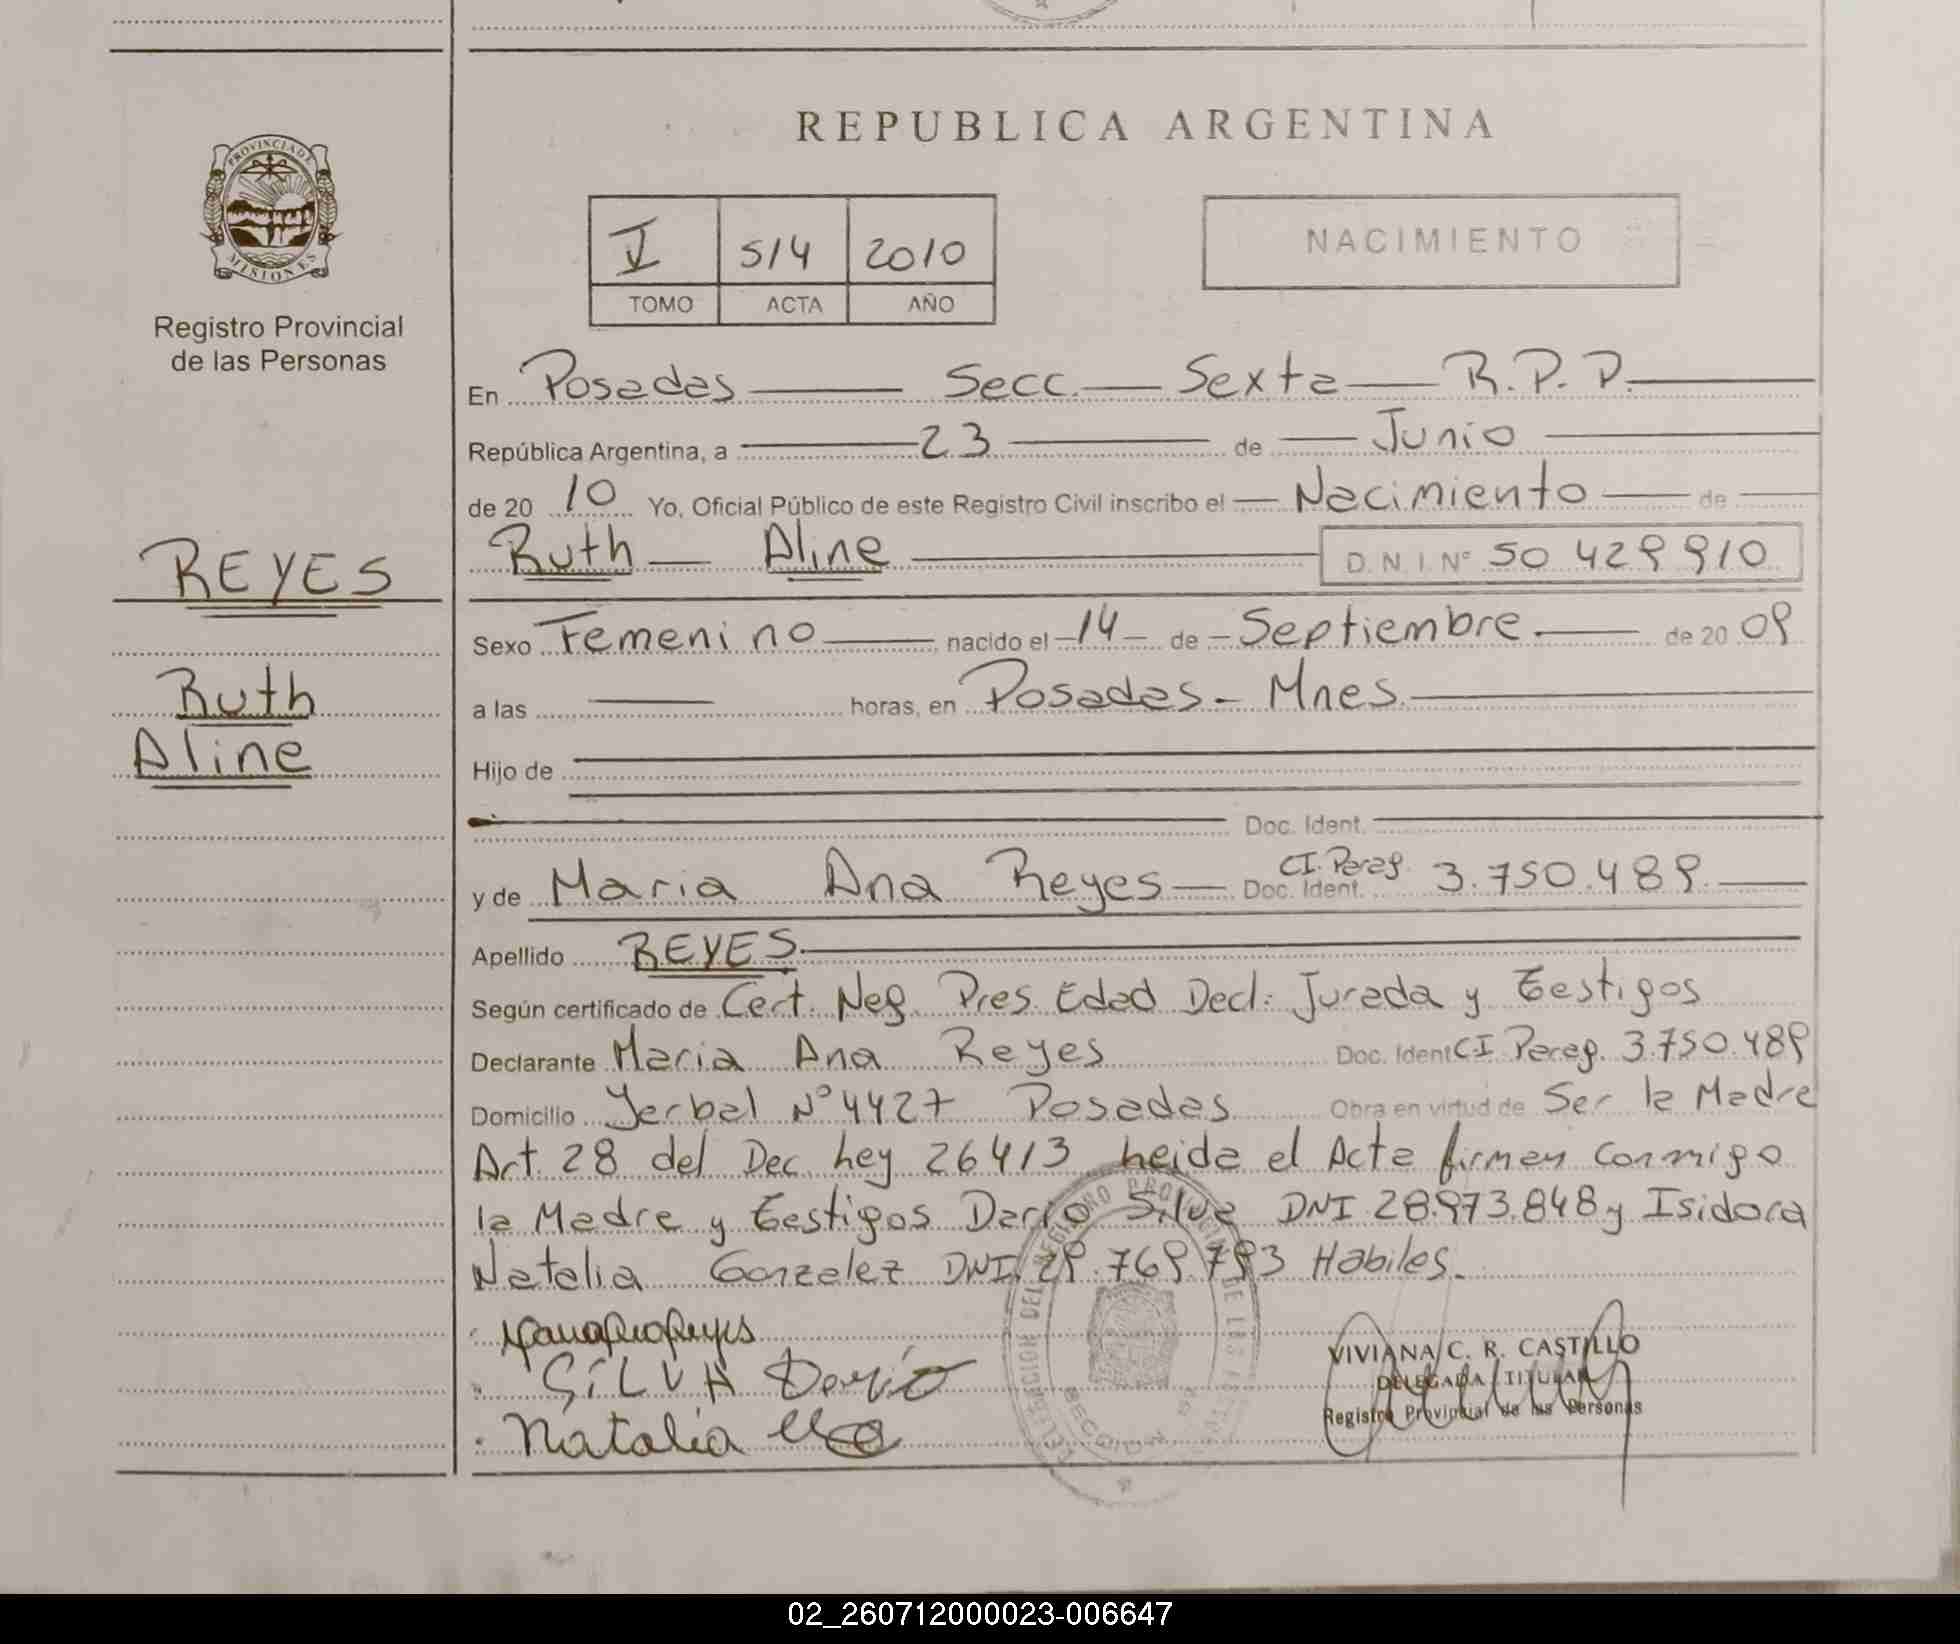 REPUBLICA ARGENTINA
PROVINCIA DE
MISIONES
Registro Provincial
de las Personas
I 514 2010
TOMO ACTA AÑO
NACIMIENTO
REYES
Ruth
Aline
En Posadas Secc. Sexta R.P.P.
República Argentina, a 23 de Junio
de 20 10 Yo, Oficial Público de este Registro Civil inscribo el Nacimiento de
Ruth Aline D.N.I.Nº 50 429 910
Sexo Femenino nacido el 14 de Septiembre de 20 09
a las horas, en Posadas - Mnes.
Hijo de
Doc. Ident.
y de Maria Ana Reyes Doc. Ident. CI. Parag. 3.750.489
Apellido REYES
Según certificado de Cert. Neg. Pres. Edad Decl: Jurada y Testigos
Declarante Maria Ana Reyes Doc. Ident CI Parag. 3.750.489
Domicilio Yerbal Nº 4427 Posadas Obra en virtud de Ser la Madre
Art. 28 del Dec. Ley 26413 Leida el Acta firman conmigo
la Madre y Testigos Dario Silva DNI 28.973.848 y Isidora
Natalia Gonzalez DNI. 29.769.793 Habiles.
SILVA Dario
Natalia
VIVIANA C. R. CASTILLO
DELEGADA TITULAR
Registro Provincial de las Personas
02_260712000023-006647